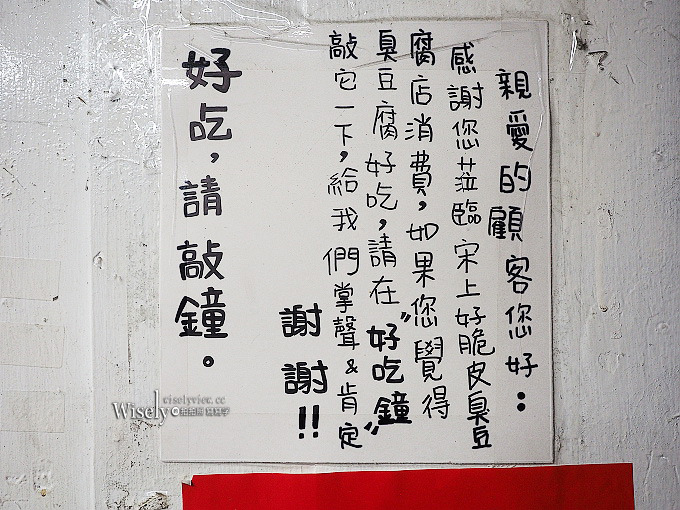 親愛的顧客您好：
感謝您蒞臨宋上好脆皮臭豆
腐店消費，如果您覺得
臭豆腐好吃，請在"好吃鐘"
敲它一下，給我們掌聲&肯定
謝謝!!
好吃，請敲鐘。
wiselyview.cc
Wisely拍拍照寫寫字